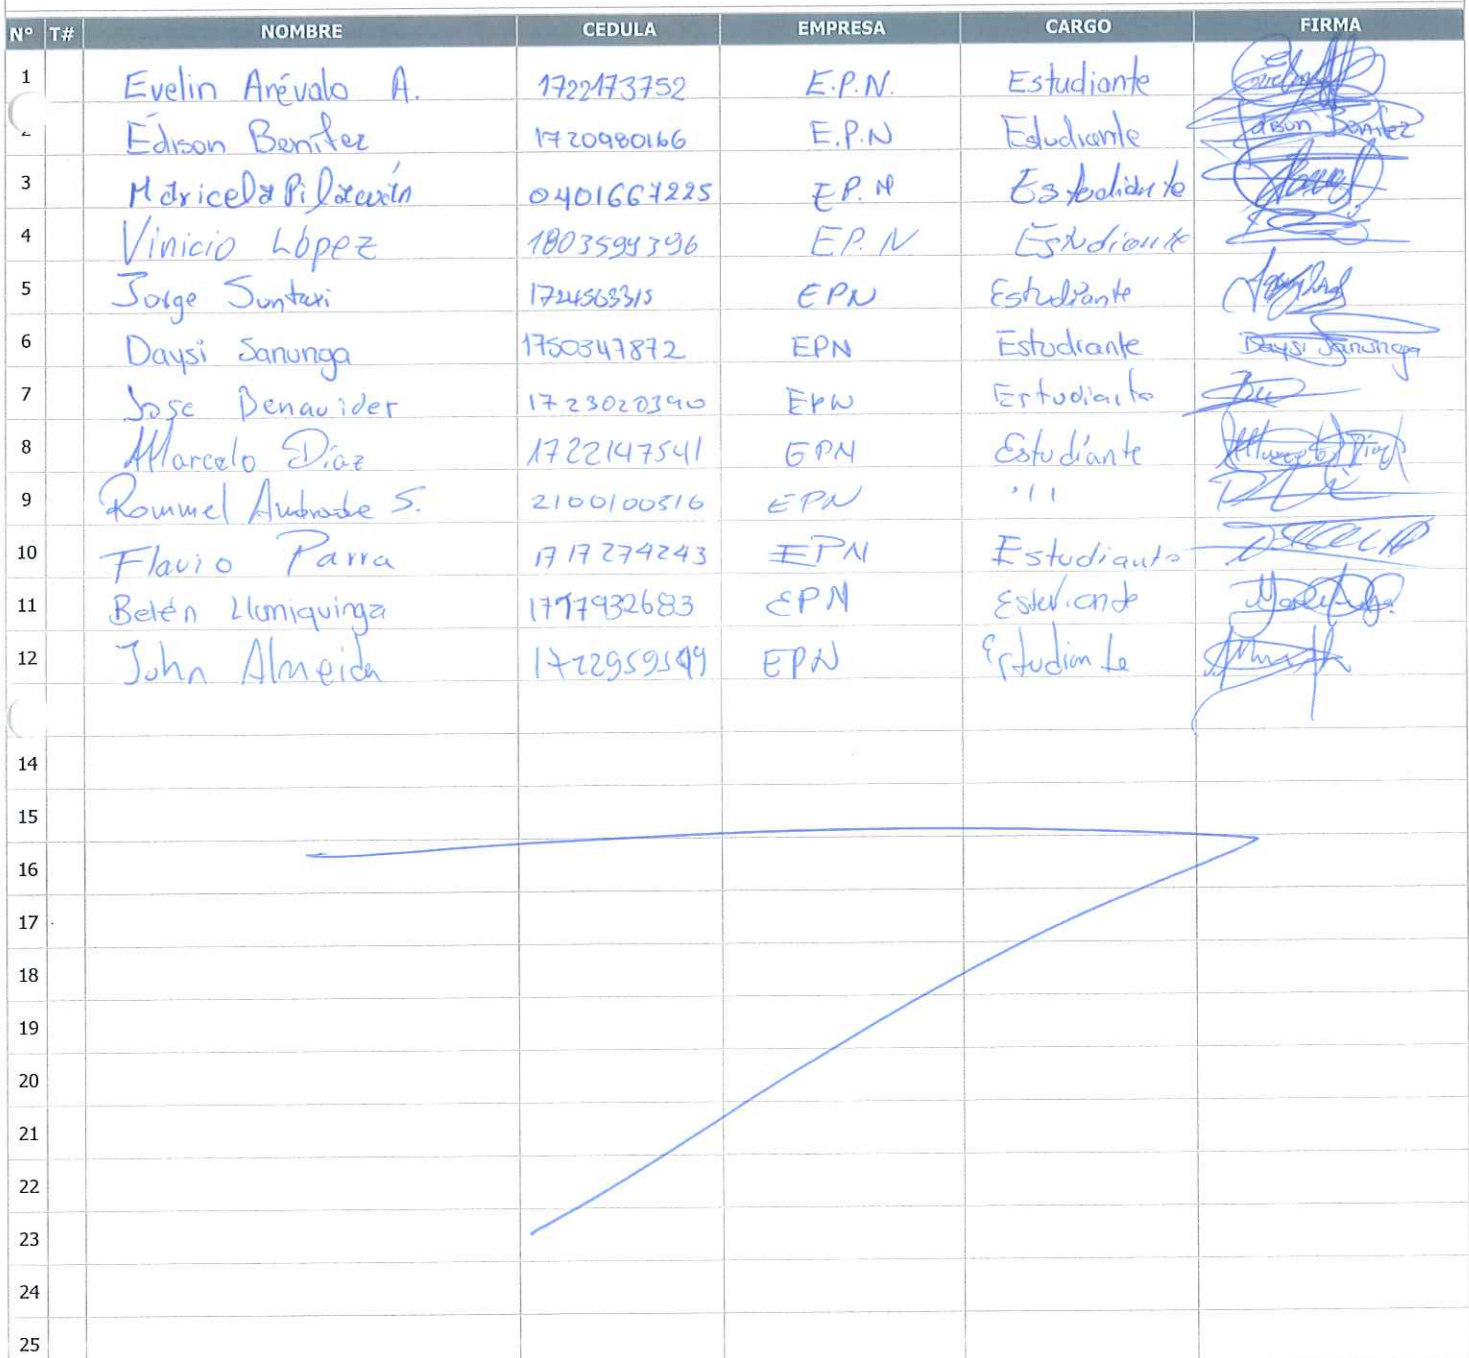 N° T# NOMBRE CEDULA EMPRESA CARGO FIRMA
1 Evelin Arévalo A. 1722173752 E.P.N. Estudiante
2 Edison Benítez 1720980166 E.P.N Estudiante Edison Benitez
3 Maricela 0401667225 E P. N Estudiante
4 Vinicio López 1803599396 E P. N Estudiante
5 Jorge Suntaxi 1724563315 EPN Estudiante
6 Daysi Sanunga 1750347872 EPN Estudiante Daysi Sanunga
7 Jose Benavides 1723020390 EPN Estudiante
8 Marcelo Díaz 1722147541 EPN Estudiante
9 Rommel Andrade S. 2100100516 EPN '11
10 Flavio Parra 1717274243 EPN Estudiante
11 Belén Llumiquinga EPN
12 John Almeida EPN Estudiante
14
15
16
17
18
19
20
21
22
23
24
25